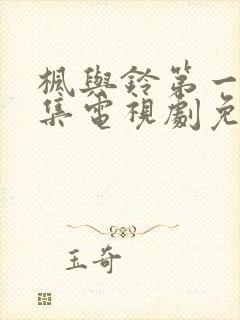 楓與鈴第一
集電視劇免
玉奇